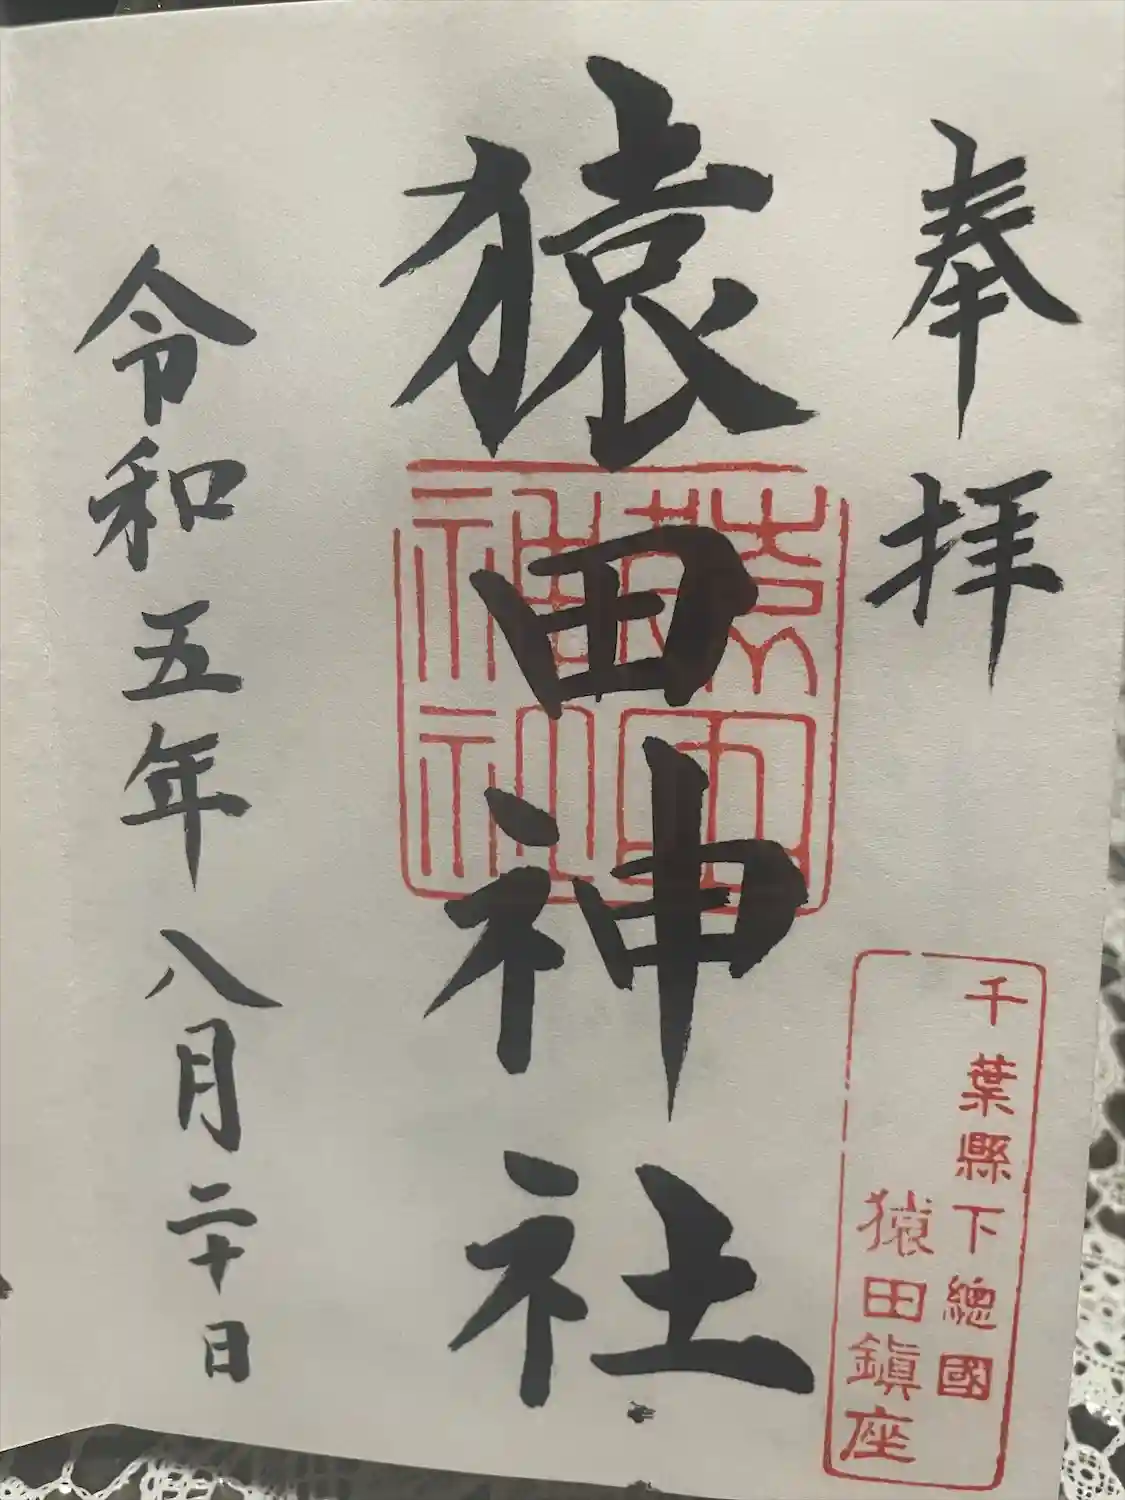 奉拝
千葉縣下總國
猿田鎮座
猿田神社
猿田神社
令和五年八月二十日